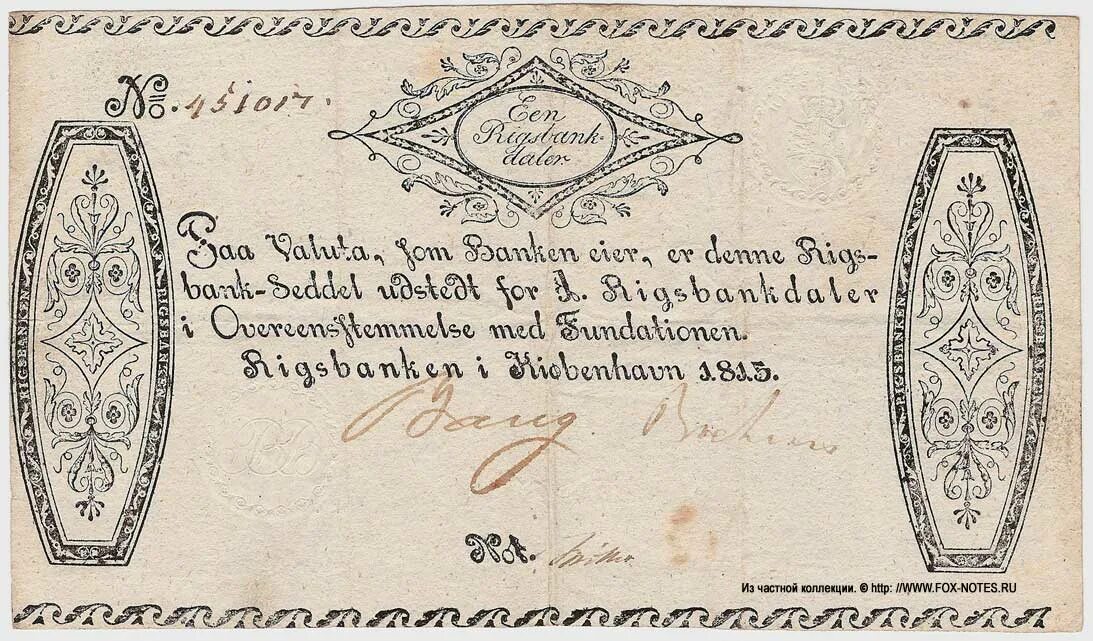 No. 451017.
Een
Rigsbank-
daler
Paa Valuta, som Banken eier, er denne Rigs-
bank-Seddel udstedt for 1. Rigsbankdaler
i Overeensstemmelse med Fundationen.
Rigsbanken i Kiøbenhavn 1.8.1.3.
Bang
Not.
RIGSBANKEN
RIGSBANKEN
RIGSBANKEN
RIGSBANKEN
Из частной коллекции. © http: //WWW.FOX-NOTES.RU